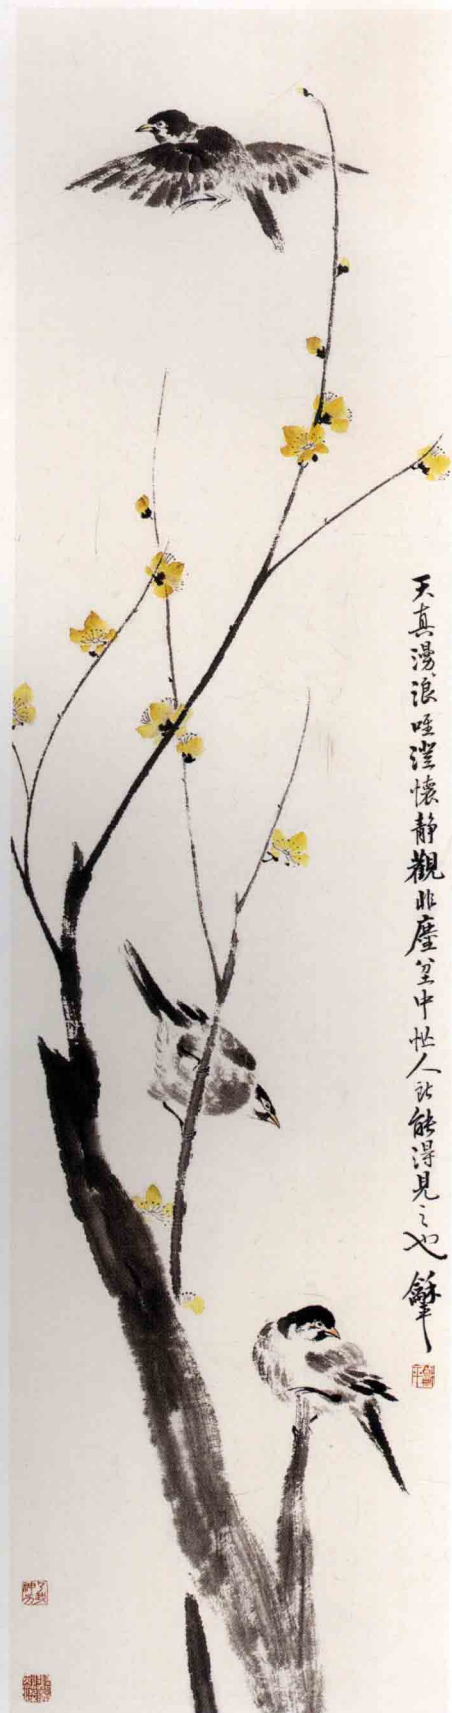 天真漫浪唯澄懷静觀非塵坌中忙人所能得見之也 龢平